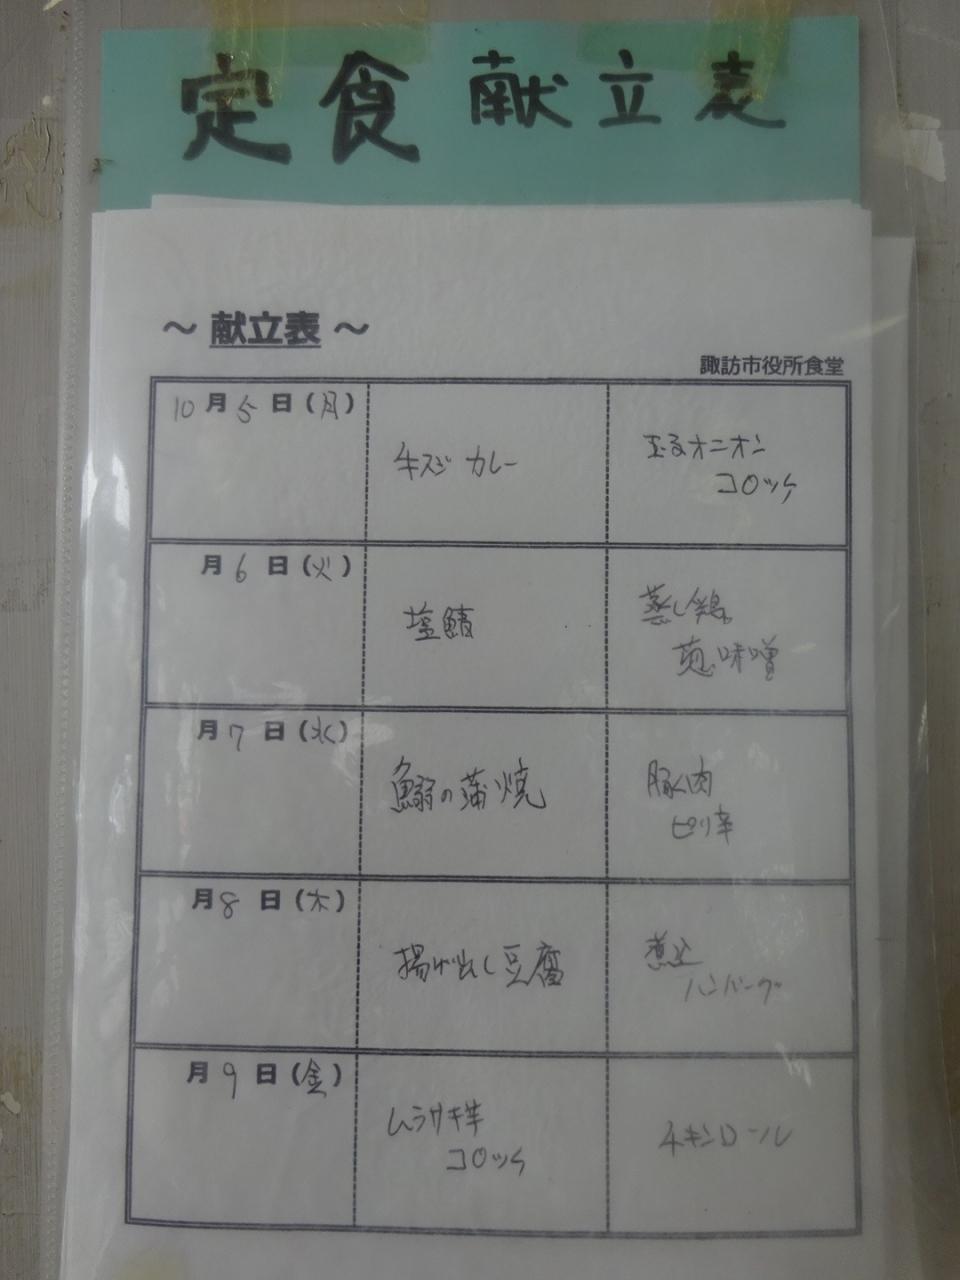 定食 献立表
～ 献立表 ～
諏訪市役所食堂
10月5日(月)
牛スジカレー
まるオニオン
コロッケ
月6日(火)
塩鯖
蒸し鶏
葱味噌
月7日(水)
鰯の蒲焼
豚肉
ピリ辛
月8日(木)
揚げ出し豆腐
煮込
ハンバーグ
月9日(金)
ムラサキ芋
コロッケ
チキンロール